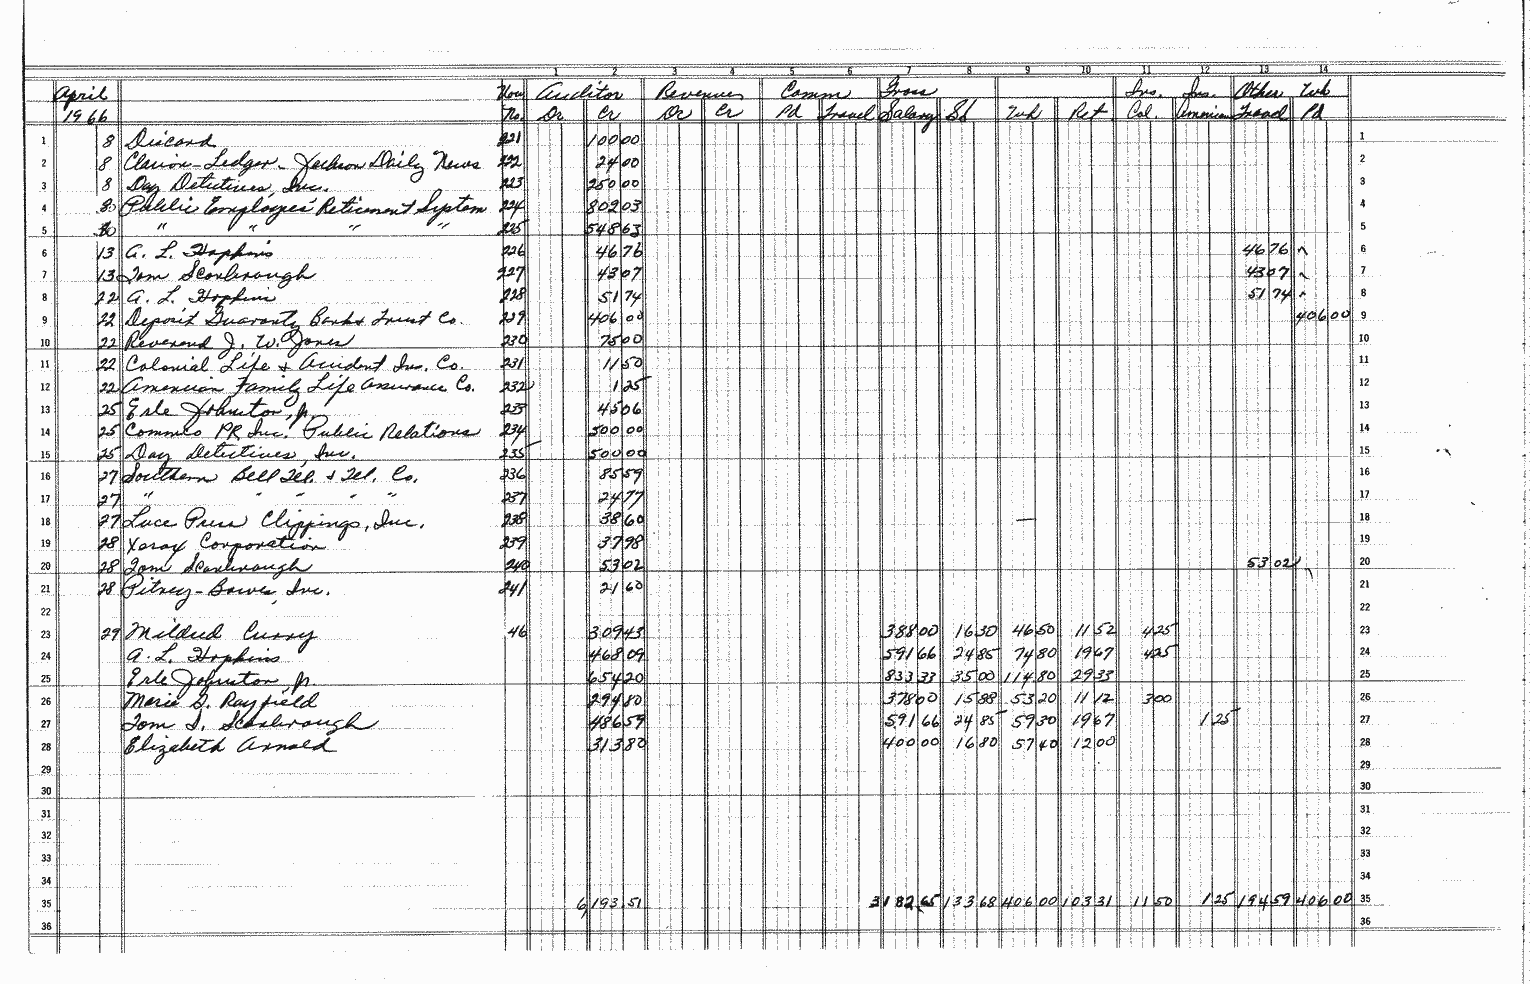 1 2 3 4 5 6 7 8 9 10 11 12 13 14
April Vou Auditor Revenues Comm Gross Ins. Ins. Other Wh
1966 No. Dr Cr Dr Cr Pd Travel Salary SS Wh Ret Col. American Travel Pd
1 8 Discard 221 100 00 1
2 8 Clarion-Ledger - Jackson Daily News 222 24 00 2
3 8 Day Detectives, Inc. 223 250 00 3
4 8 Public Employees' Retirement System 224 802 03 4
5 " " " " 225 548 63 5
6 13 A. L. Hopkins 226 46 76 46 76 6
7 13 Tom Scarbrough 227 43 07 43 07 7
8 22 A. L. Hopkins 228 51 74 51 74 8
9 22 Deposit Guaranty Bank & Trust Co. 229 406 00 406 00 9
10 22 Reverend J. W. Jones 230 75 00 10
11 22 Colonial Life & Accident Ins. Co. 231 11 50 11
12 22 American Family Life Assurance Co. 232 1 25 12
13 25 Erle Johnston, Jr. 233 45 06 13
14 25 Commco PR Inc. Public Relations 234 500 00 14
15 25 Day Detectives, Inc. 235 500 00 15
16 27 Southern Bell Tel. & Tel. Co. 236 85 59 16
17 27 " " " " " 237 24 77 17
18 27 Luce Press Clippings, Inc. 238 38 60 18
19 28 Xerox Corporation 239 37 98 19
20 28 Tom Scarbrough 240 53 02 53 02 20
21 28 Pitney-Bowes, Inc. 241 21 60 21
22 22
23 29 Mildred Curry 46 309 43 388 00 16 30 46 50 11 52 4 25 23
24 A. L. Hopkins 468 09 591 66 24 85 74 80 19 67 4 25 24
25 Erle Johnston, Jr 654 20 833 33 35 00 114 80 29 33 25
26 Marie G. Rayfield 294 80 378 00 15 88 53 20 11 12 3 00 26
27 Tom S. Scarbrough 486 59 591 66 24 85 59 30 19 67 1 25 27
28 Elizabeth Arnold 313 80 400 00 16 80 57 40 12 00 28
29 29
30 30
31 31
32 32
33 33
34 34
35 6,193 51 3182 65 133 68 406 00 103 31 11 50 1 25 194 59 406 00 35
36 36